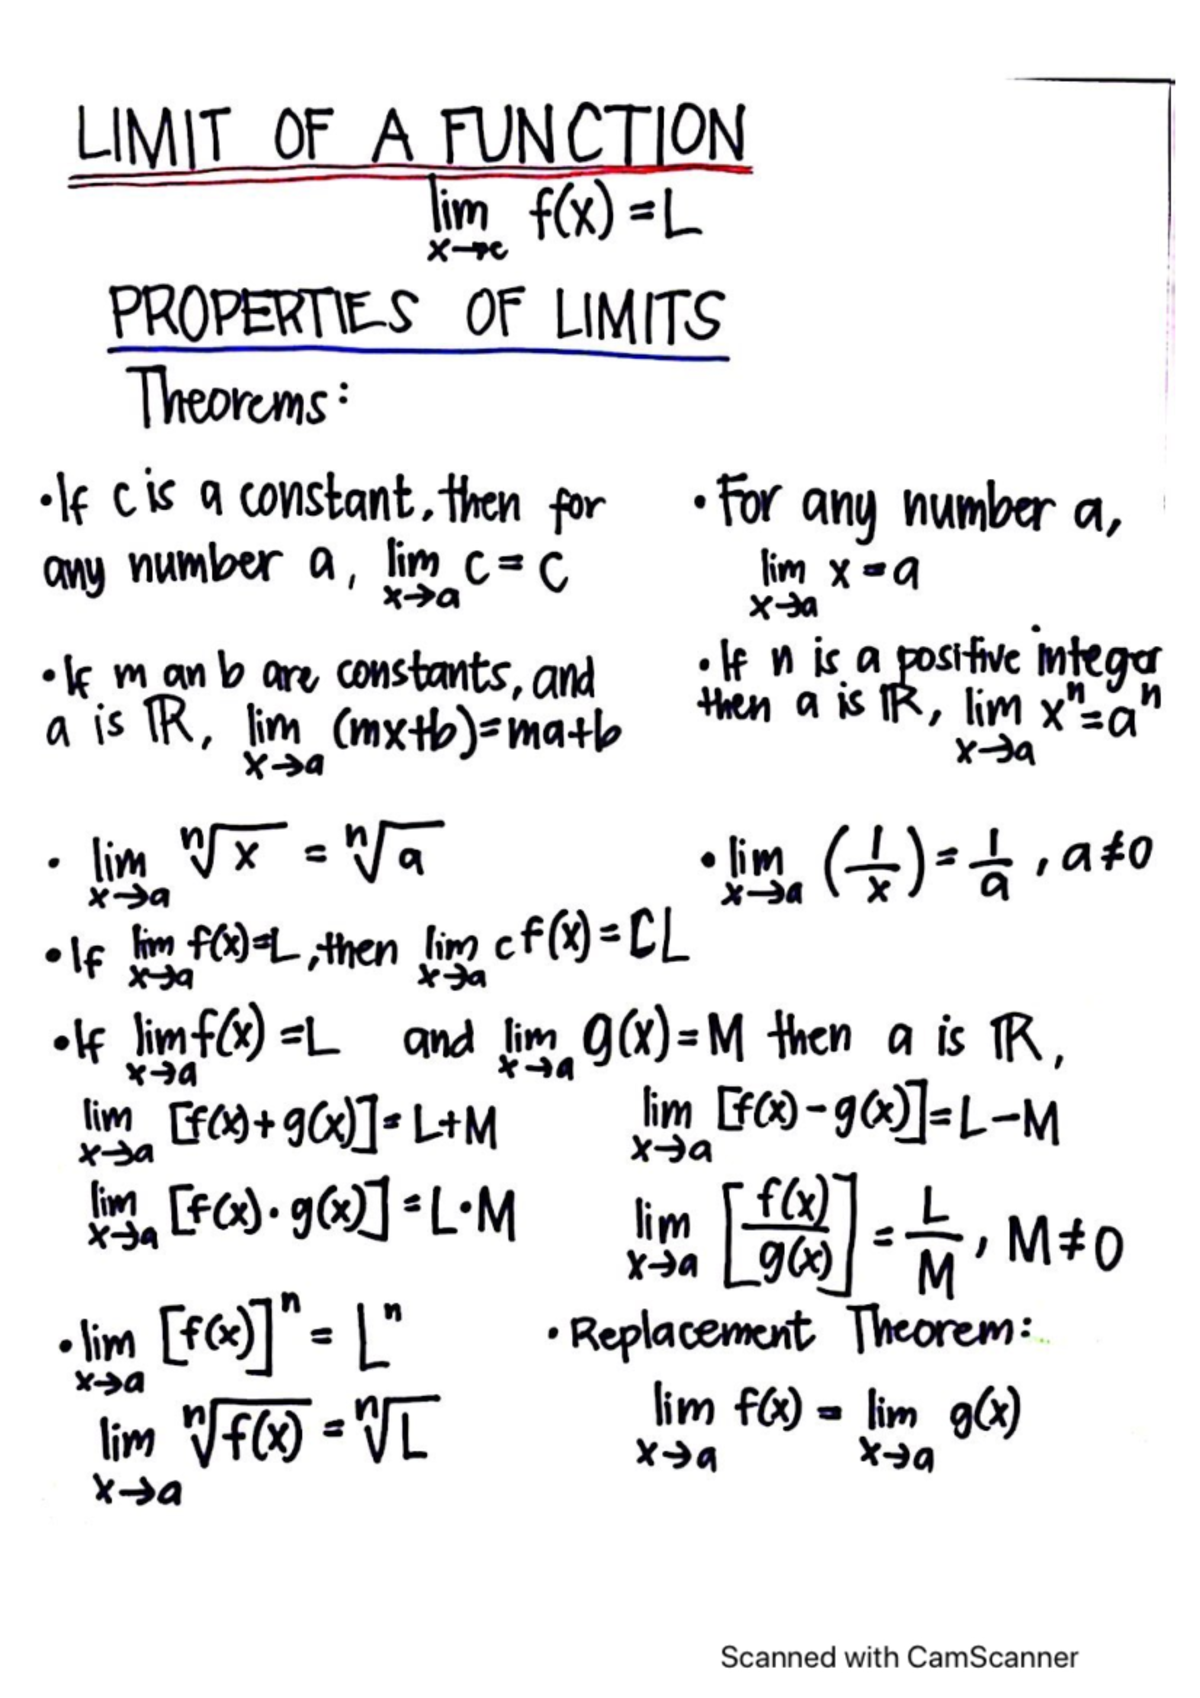 LIMIT OF A FUNCTION
lim x→c f(x) = L
PROPERTIES OF LIMITS
Theorems:
•If c is a constant, then for
any number a, lim x→a c = c
• For any number a,
lim x→a x = a
•If m an b are constants, and
a is ℝ, lim x→a (mx+b)=ma+b
•If n is a positive integer
then a is ℝ, lim x→a xⁿ=aⁿ
• lim x→a ⁿ√x = ⁿ√a
•lim x→a (1/x) = 1/a , a≠0
•If lim x→a f(x)=L, then lim x→a cf(x)=CL
•If lim x→a f(x) =L and lim x→a g(x)=M then a is ℝ,
lim x→a [f(x)+g(x)]= L+M
lim x→a [f(x)-g(x)]=L-M
lim x→a [f(x)·g(x)] =L·M
lim x→a [f(x)/g(x)] = L/M , M≠0
•lim x→a [f(x)]ⁿ = Lⁿ
lim x→a ⁿ√f(x) = ⁿ√L
•Replacement Theorem:
lim x→a f(x) = lim x→a g(x)
Scanned with CamScanner